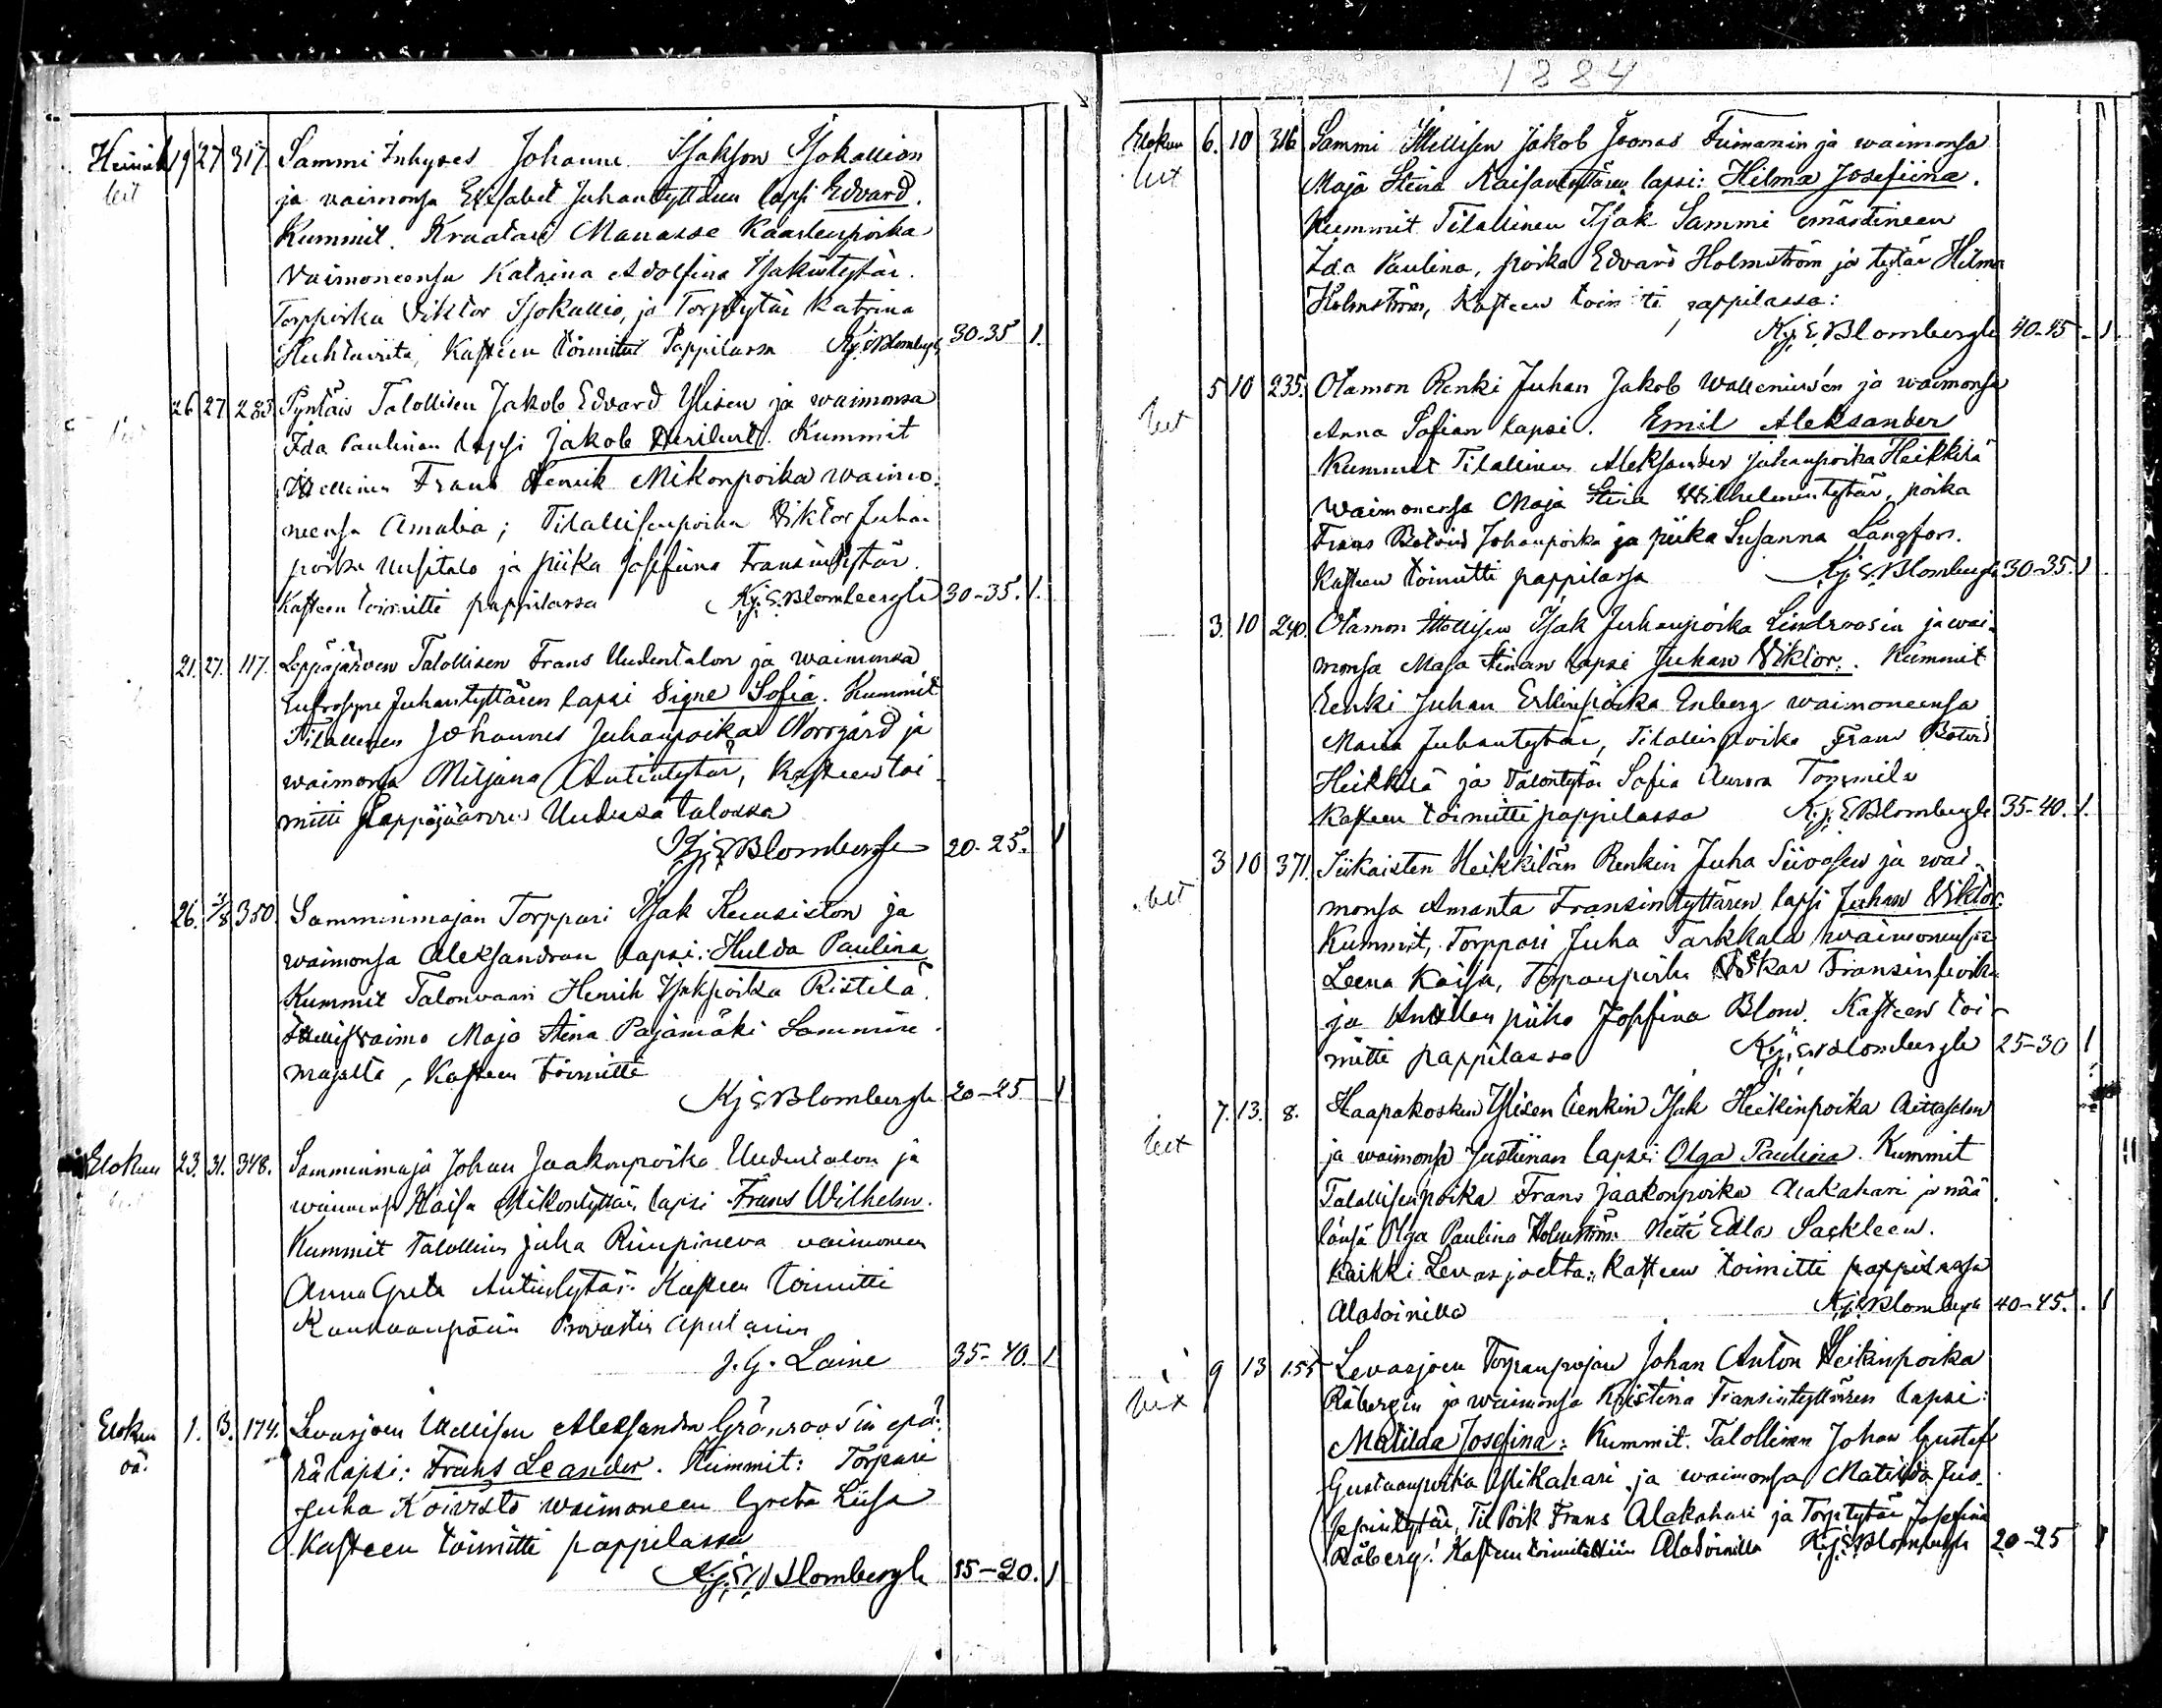 1884
Heinäk 19 27 317. Sammi Inhyses Johanne Isakson Isokallion
ja vaimonsa Elisabet Juhantyttären lapsi Edvard.
Kummit. Kraatari Manasse Kaarlenpoika
Vaimoneensa Katrina Adolfina Isakintytär.
Torppoika Viktor Isokallio, ja Torptytär Katrina
Kasteen toimitus Pappilassa Kj. E. Blombergh 30-35 1.
26 27 283 Talollisen Jakob Edvard Ylisen ja waimonsa
Ida Paulinan lapsi Jakob. Kummit
Frans Henrik Mikonpoika waimo-
neensa Amalia; Tilallisenpoika Viktor Juhan
poika Uusitalo ja piika Josefiina Fransintytär.
Kasteen toimitti pappilassa Kj. E. Blombergh 30-35. 1.
21. 27. 117. Leppäjärven Talollisen Frans Uudentalon ja waimonsa
Eufrosyne Juhantyttären lapsi Signe Sofia. Kummit
Tilallinen Johannes Juhanpoika Norrgård ja
waimonsa Miljana Antintytär, Kasteen toi-
mitti Leppäjärven Uudessa talossa
Kj. E. Blombergh 20-25. 1
26. 3/8 350. Samminmajan Torppari Isak Kuusiston ja
waimonsa Aleksandran lapsi: Hulda Paulina
Kummit Talonvaari Henrik Isakpoika Ristilä.
waimo Maja Stina Pajamäki Sammin
majalta, Kasteen toimitti
Kj E Blombergh 20-25 1
Elokuu 23. 31. 348. Samminmaja Johan Jaakonpoika Uudentalon ja
waimonsa Kaisa Mikontyttär lapsi Frans Wilhelm.
Kummit Talollinen Juha Rimpineva vaimoneen
Anna Greta Antintytär. Kasteen toimitti
Kankaanpään Provastin Apulainen
J. G. Laine 35-40. 1
Elokuu 1. 3. 174. Levasjoen Aleksandra Grönroos'in epä-
rälapsi: Frans Leander. Kummit: Torpari
Juha Koivisto waimoneen Greta Liisa
Kasteen toimitti pappilassa
Kj. E. Blombergh 15-20. 1
Elokuu 6. 10 316 Sammi Itsellisen Jakob Joonas ja waimonsa
Maja Stina Kaisantyttären lapsi: Hilma Josefiina.
Kummit Tilallinen Isak Sammi emäntineen
Ida Paulina, poika Edvard Holmström ja tytär Hilma
Holmström, Kasteen toimitti pappilassa:
Kj. E Blombergh 40-45 - 1.
5 10 235. Otamon Renki Juhan Jakob Wallenius'en ja waimonsa
Anna Sofian lapsi. Emil Aleksander
Kummit Tilallinen Aleksander Juhanpoika Heikkilä
waimonensa Maja Stina Wilhelmintytär, poika
Frans Johanpoika ja piika Susanna Långfors.
Kasteen toimitti pappilassa Kj. E. Blombergh 30-35. 1
3. 10 240. Otamon Itsellisen Isak Juhanpoika Lindroosin ja wai-
monsa Maja Stinan lapsi Juhan Viktor. Kummit
Renki Juhan Erkinpoika Enberg waimoneensa
Maria Juhantytär, Tilallispoika Frans
Heikkilä ja Talontytär Sofia Aurora Tommila
Kasteen toimitti pappilassa Kj. E Blombergh 35-40. 1.
3 10 371. Siikaisten Heikkilän Renkin Juha Siivosen ja wai-
monsa Amanta Fransintyttären lapsi Juhan Viktor.
Kummit, Torppari Juha Tarkkala waimonensa
Leena Kaisa, Torpanpoika Oskar Fransinpoika
ja piika Josefina Blom. Kasteen toi-
mitti pappilassa Kj. E. Blombergh 25-30 1
7. 13. 8. Haapakosken Ylisen renkin Isak Heikinpoika
ja waimonsa Justiinan lapsi: Olga Paulina. Kummit
Talollisenpoika Frans Jaakonpoika Alakahari ja
Olga Paulina Holmström. Neiti Edla
Kaikki Levasjoelta: Kasteen toimitti pappilassa
Alatoinilla Kj. E. Blombergh 40-45. 1
9 13 155 Levasjoen Torpanpojan Johan Anton Heikinpoika
Råbergin ja waimonsa Kristina Fransintyttären lapsi:
Matilda Josefina: Kummit. Talollinen Johan Gustaf
Gustaanpoika Ylikahari ja waimonsa Matilda Jus-
Til Poik Frans Alakahari ja Torptytär Josefina
Råberg! Kasteen toimitettiin Alatoinilla Kj. E. Blombergh 20-25 1